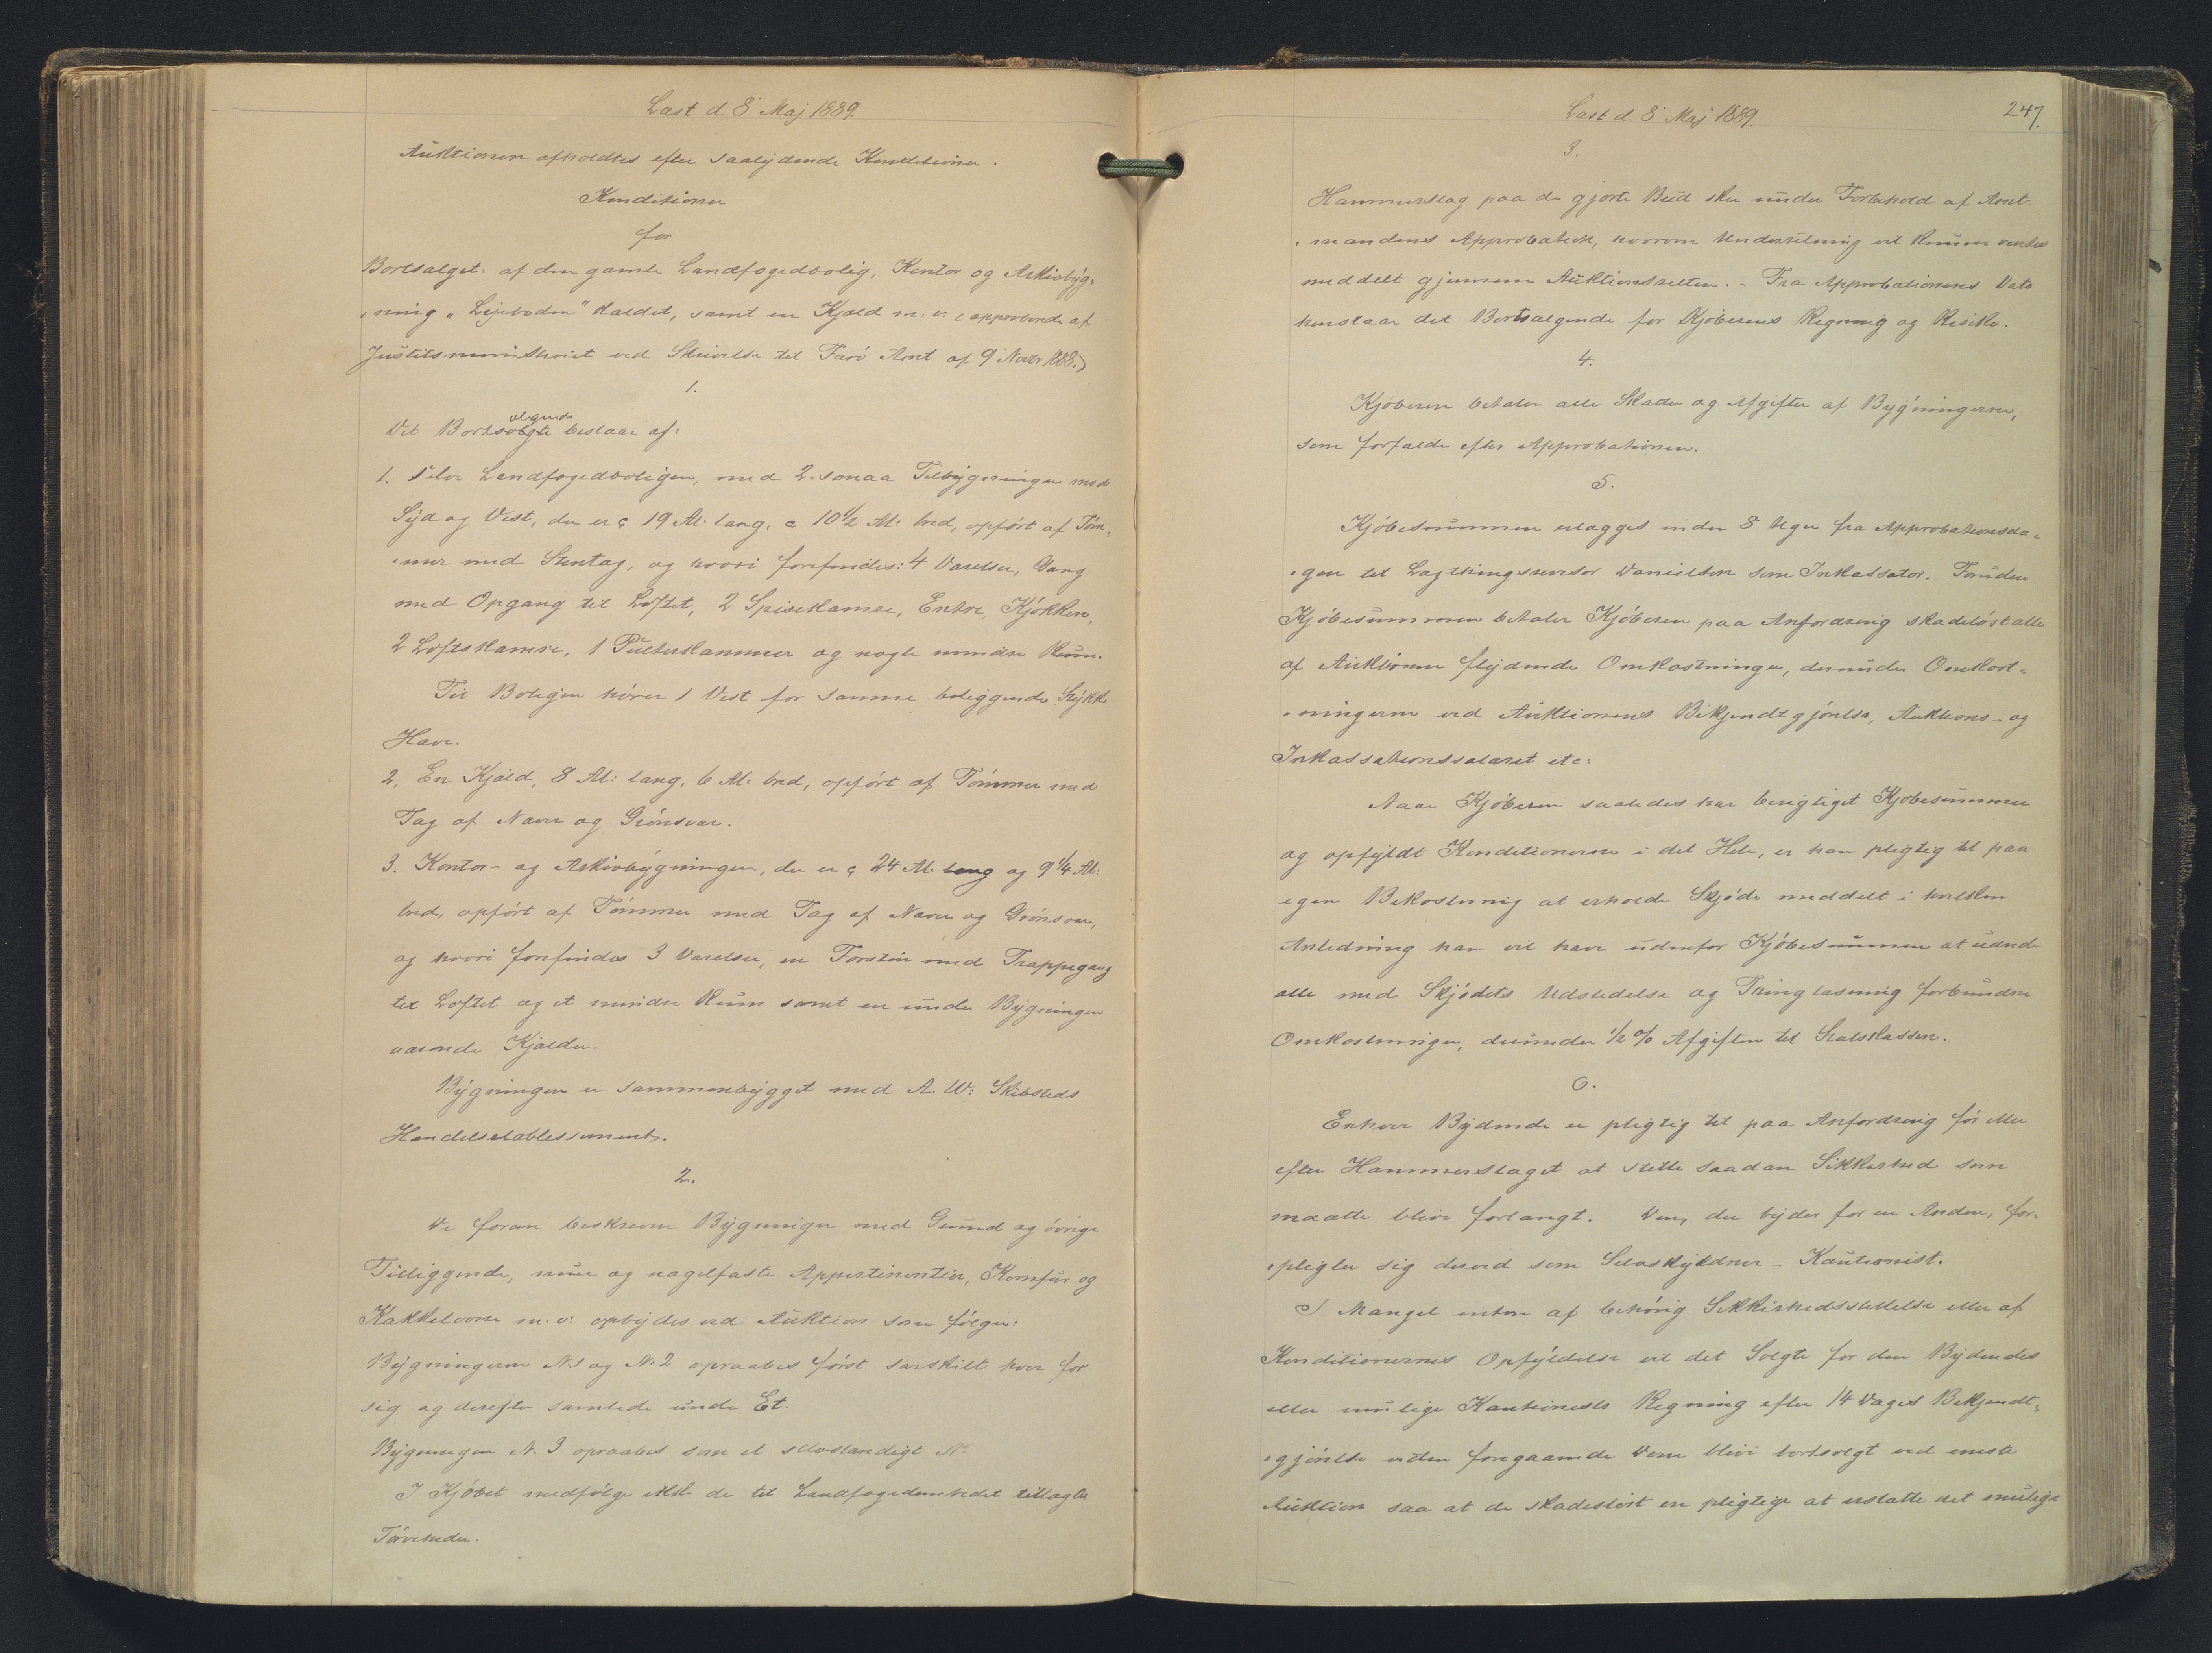 Læst d. 8' Maj 1889.
Auktionen afholdtes efter saalydende Konditioner.
Konditioner
for
Bortsalget af den gamle Landfogedbolig, Kontor og Arkivbyg-
-ning "Lejeboden" kaldet, samt en Kjald m. v. (approberede af
Justitsministeriet ved Skrivelse til Færø Amt af 9' Novbr 1888.)
1.
ælgende
Det Bortsolgte bestaar af:
1. Selve Landfogedboligen, med 2 smaa Tilbygninger mod
Syd og Vest, der er c 19 Al: lang, c 10 1/2 Al: bred, opført af Tøm-
-mer med Stentag, og hvori forefindes: 4 Værelser, Gang
med Opgang til Loftet, 2 Spisekamre, Entre, Kjøkken,
2 Loftskamre, 1 Pulterkammer og nogle mindre Rum.
Til Boligen hører 1 Vest for samme beliggende Stykke
Have.
2, En Kjald, 8 Al: lang, 6 Al: bred, opført af Tømmer med
Tag af Næver og Grønsvær.
3. Kontor- og Arkivbygningen, der er c 24 Al. lang og 9 1/4 Al:
bred, opført af Tømmer med Tag af Næver og Grønsvær,
og hvori forefindes 3 Værelser, en Forstue med Trappegang
til Loftet og et mindre Rum samt en under Bygningen
værende Kjælder.
Bygningen er sammenbygget med A. W: Skibsteds
Handelsetablissement.
2.
De foran beskrevne Bygninger med Grund og øvrige
Tilliggende, mur og nagelfaste Appertinentier, Komfur og
Kakkelovne m. v: opbydes ved Auktion som følger:
Bygningerne N. 1 og N. 2 opraabes først særskilt hver for
sig og derefter samlede under Et.
Bygningen N. 3 opraabes som et selvstændigt No
I Kjøbet medfølge ikke de til Landfogedembedet tillagte
Tørveheder.
Læst d. 8' Maj 1889.
247.
3.
Hammerslag paa de gjorte Bud sker under Forbehold af Amt-
-mandens Approbation, hvorom Underretning vil kunne ventes
meddelt gjennem Auktionsretten. - Fra Approbationens Dato
henstaar det Bortsælgende for Kjøberens Regning og Risiko.
4.
Kjøberen betaler alle Skatter og Afgifter af Bygningerne,
som forfalde efter Approbationen.
5.
Kjøbesummen erlægges inden 8 Uger fra Approbationsda-
-gen til Lagthingsrevisor Danielsen som Inkassator. Foruden
Kjøbesummen betaler Kjøberen paa Anfordring skadesløst alle
af Auktionen flydende Omkostninger, derunder Omkost-
-ningerne ved Auktionens Bekjendtgjørelse, Auktions- og
Inkassationssalæret etc:
Naar Kjøberen saaledes har berigtiget Kjøbesummen
og opfyldt Konditionerne i det Hele, er han pligtig til paa
egen Bekostning at erholde Skjøde meddelt i hvilken
Anledning han vil have udenfor Kjøbesummen at udrede
alle med Skjødets Udstedelse og Tinglæsning forbundne
Omkostninger, derunder 1/2 % Afgiften til Statskassen.
6.
Enhver Bydende er pligtig til paa Anfordring før eller
efter Hammerslaget at stille saadan Sikkerhed som
maatte blive forlangt. Den, der byder for en Anden, for-
-pligter sig derved som Selvskyldner-Kautionist.
I Mangel enten af behørig Sikkerhedsstillelse eller af
Konditionernes Opfyldelse vil det Solgte for den Bydendes
eller mulige Kautionists Regning efter 14 Dages Bekjendt-
-gjørelse uden foregaaende Dom blive bortsolgt ved eneste
Auktion saa at de skadesløst ere pligtige at erstatte det mulige